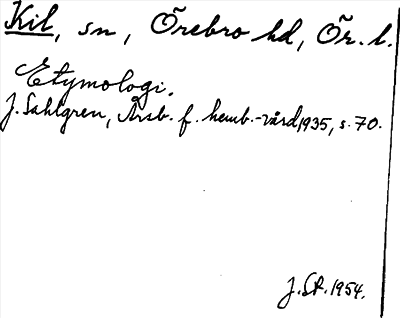 Kil, sn, Örebro hd, Ör. l.
Etymologi.
J. Sahlgren, Årsb. f. hemb.-vård 1935, s. 70.
J.Sβ. 1954.